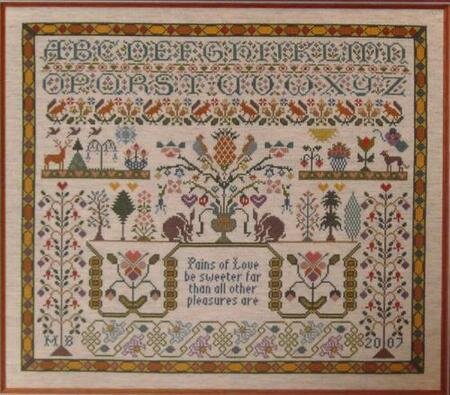 ABCDEFGHIJKLMN
OPQRSTUVWXYZ
Pains of Love
be sweeter far
than all other
pleasures are
MB 2007